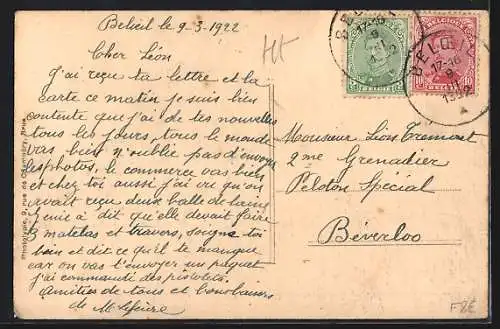 Belœil le 9-3-1922
Cher Léon
J'ai reçu ta lettre et la
carte ce matin je suis bien
contente que j'ai de tes nouvelles
tous les jours, tous le monde
vas bien n'oublie pas d'envoyer
les photos, le commerce vas bien
et chez toi aussi j'ai vu qu'on
avait reçu deux balle de laine
a dit qu'elle devait faire
matelas et travers, soigne toi
bien et dit ce qu'il te manque
car on vas t'envoyer un paquet
j'ai commandé des pistolets.
Amitiés de tous et bons baisers
de M.
Monsieur Léon Tremont
2me Grenadier
Peloton Spécial
Béverloo
BELGIQUE
BELGIË
BELGIQUE
10 BELGIË 10
BELŒIL
17-18
9
III
1922
Phototypie, 9, rue de
F8E